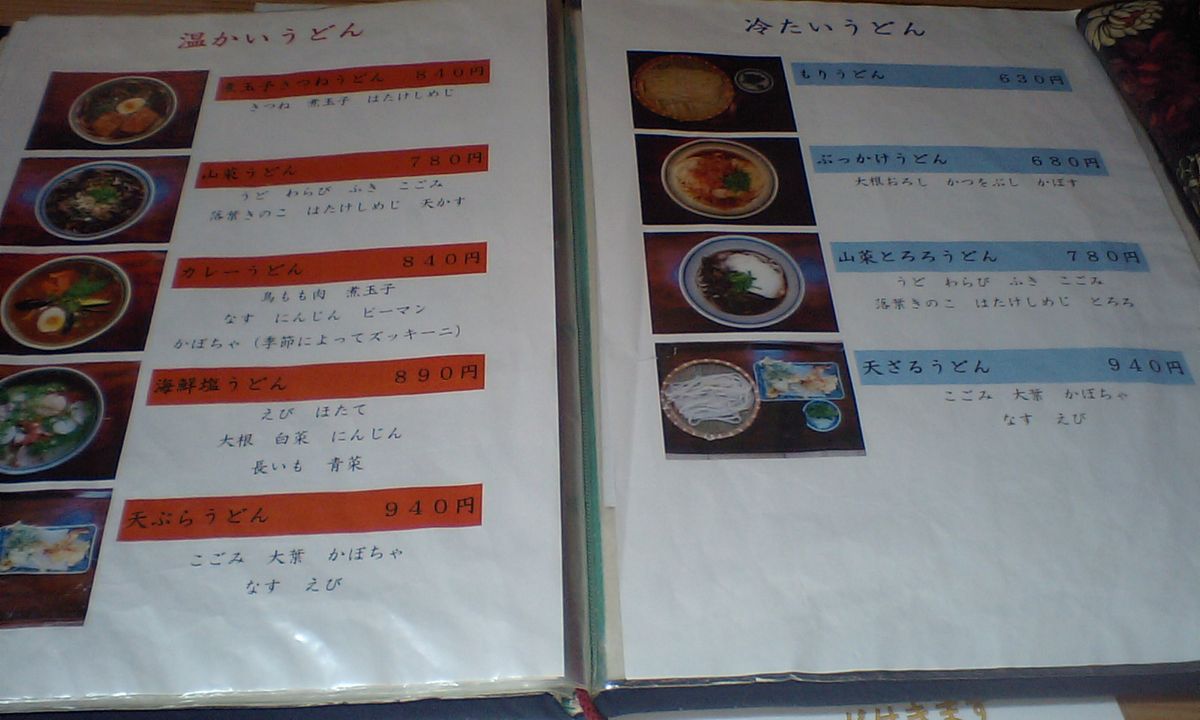 温かいうどん
煮玉子きつねうどん ８４０円
きつね 煮玉子 はたけしめじ
山菜うどん ７８０円
うど わらび ふき こごみ
落葉きのこ はたけしめじ 天かす
カレーうどん ８４０円
鳥もも肉 煮玉子
なす にんじん ピーマン
かぼちゃ（季節によってズッキーニ）
海鮮塩うどん ８９０円
えび ほたて
大根 白菜 にんじん
長いも 青菜
天ぷらうどん ９４０円
こごみ 大葉 かぼちゃ
なす えび
冷たいうどん
もりうどん ６３０円
ぶっかけうどん ６８０円
大根おろし かつをぶし かぼす
山菜とろろうどん ７８０円
うど わらび ふき こごみ
落葉きのこ はたけしめじ とろろ
天ざるうどん ９４０円
こごみ 大葉 かぼちゃ
なす えび